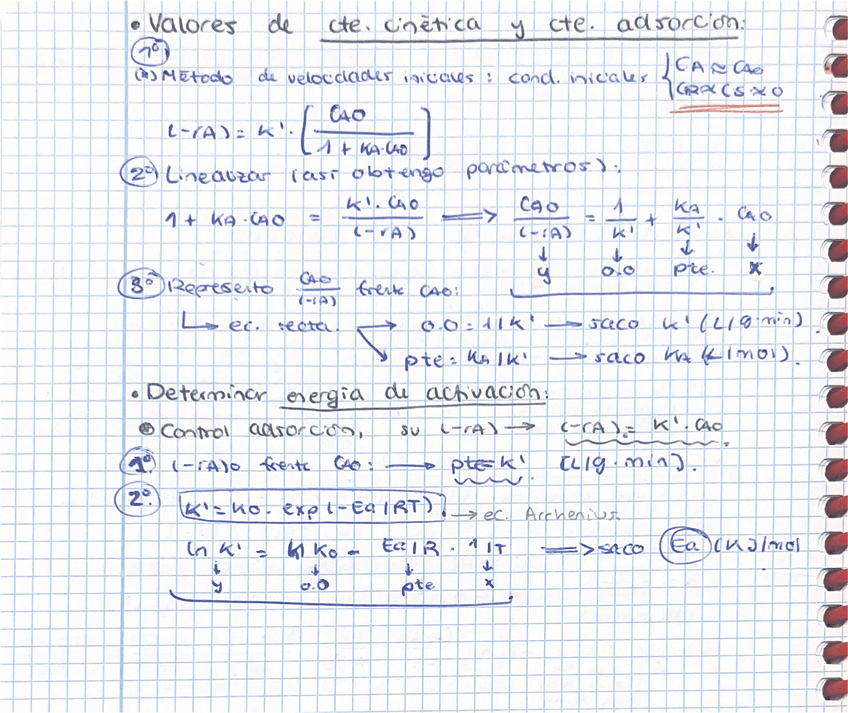 • Valores de cte. cinética y cte. adsorción:
1º
(*) Método de velocidades iniciales: cond. iniciales { CA ≈ CAO
CR ≈ CS ≈ 0
(-rA) = K' · [ CAO / 1 + KA·CAO ]
2º Linealizar (así obtengo parámetros):
1 + KA·CAO = K'·CAO / (-rA) ⟹ CAO / (-rA) = 1 / K' + KA / K' · CAO
↓ ↓ ↓ ↓
y 0.0 pte. x
3º Represento CAO / (-rA) frente CAO:
↳ ec. recta. → 0.0 = 1/K' → saco K' (L/g·min).
↘ pte = KA/K' → saco KA (L/mol).
• Determinar energía de activación:
Control adsorción, su (-rA) → (-rA) = K'·CAO.
1º (-rA)0 frente CAO: → pte = K'. [L/g·min].
2º. K' = K0 · exp(-Ea/RT). → ec. Arrhenius.
ln K' = ln K0 - Ea/R · 1/T ⟹ saco Ea (KJ/mol
↓ ↓ ↓ ↓
y 0.0 pte x